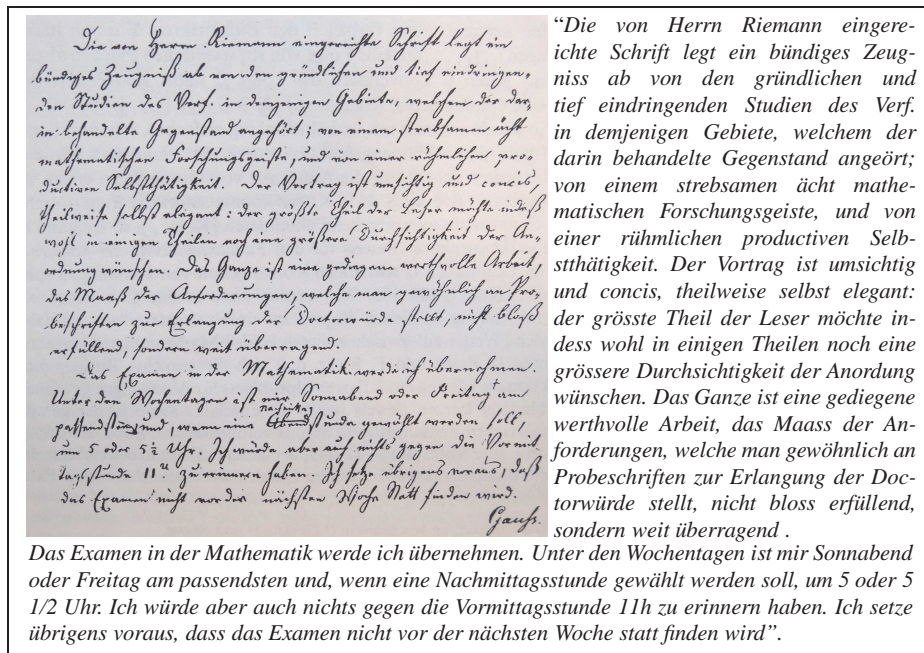 Die von Herrn Riemann eingereichte Schrift legt ein
bündiges Zeugniß ab von den gründlichen und tief eindringen-
den Studien des Verf. in demjenigen Gebiete, welchem der dar-
in behandelte Gegenstand angehört; von einem strebsamen ächt
mathematischen Forschungsgeiste, und von einer rühmlichen pro-
ductiven Selbstthätigkeit. Der Vortrag ist umsichtig und concis,
theilweise selbst elegant: der größte Theil der Leser möchte indeß
wohl in einigen Theilen noch eine größere Durchsichtigkeit der An-
ordnung wünschen. Das Ganze ist eine gediegene werthvolle Arbeit,
das Maaß der Anforderungen, welche man gewöhnlich an Pro-
beschriften zur Erlangung der Doctorwürde stellt, nicht bloß
erfüllend, sondern weit überragend.
Das Examen in der Mathematik werde ich übernehmen.
Unter den Wochentagen ist mir Sonnabend oder Freitag am
passendsten und, wenn eine Nachmittagstunde gewählt werden soll,
um 5 oder 5½ Uhr. Ich würde aber auch nichts gegen die Vormit-
tagsstunde 11u. zu erinnern haben. Ich setze übrigens voraus, daß
das Examen nicht vor der nächsten Woche Statt finden wird.
Gauß.
“Die von Herrn Riemann eingere-
ichte Schrift legt ein bündiges Zeug-
niss ab von den gründlichen und
tief eindringenden Studien des Verf.
in demjenigen Gebiete, welchem der
darin behandelte Gegenstand angeört;
von einem strebsamen ächt mathe-
matischen Forschungsgeiste, und von
einer rühmlichen productiven Selb-
stthätigkeit. Der Vortrag ist umsichtig
und concis, theilweise selbst elegant:
der grösste Theil der Leser möchte in-
dess wohl in einigen Theilen noch eine
grössere Durchsichtigkeit der Anordung
wünschen. Das Ganze ist eine gediegene
werthvolle Arbeit, das Maass der An-
forderungen, welche man gewöhnlich an
Probeschriften zur Erlangung der Doc-
torwürde stellt, nicht bloss erfüllend,
sondern weit überragend .
Das Examen in der Mathematik werde ich übernehmen. Unter den Wochentagen ist mir Sonnabend
oder Freitag am passendsten und, wenn eine Nachmittagsstunde gewählt werden soll, um 5 oder 5
1/2 Uhr. Ich würde aber auch nichts gegen die Vormittagsstunde 11h zu erinnern haben. Ich setze
übrigens voraus, dass das Examen nicht vor der nächsten Woche statt finden wird”.